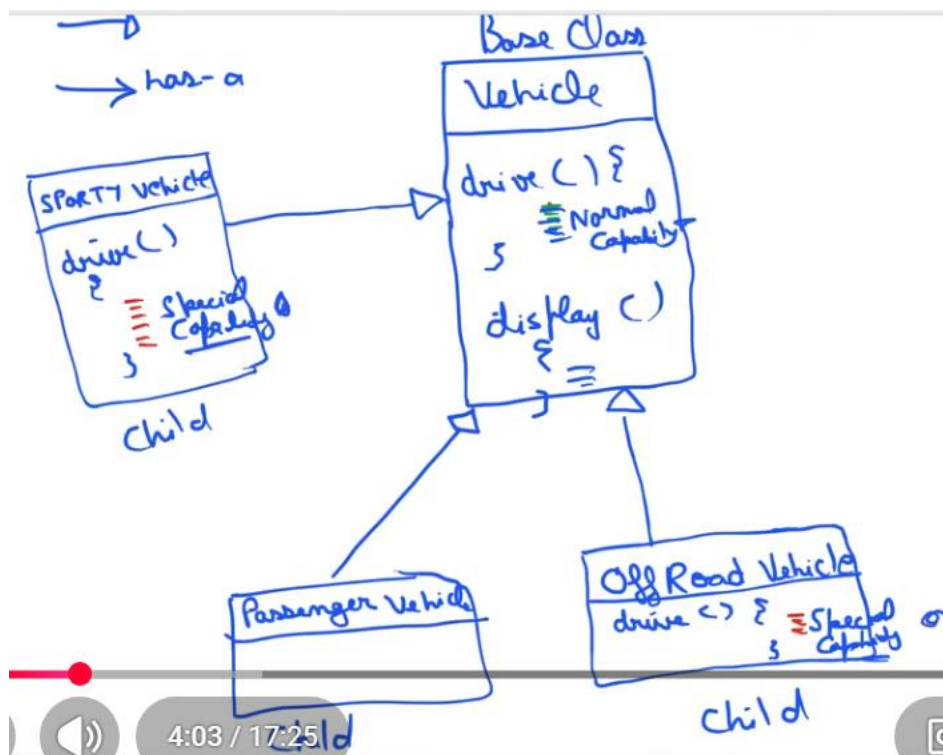 Base Class
has-a
Vehicle
drive ( ) {
Normal
Capability
}
display ( )
{
}
SPORTY Vehicle
drive ( )
{
Special
Capability
}
Child
Passenger Vehicle
Child
Off Road Vehicle
drive ( ) {
Special
Capability
}
Child
4:03 / 17:25